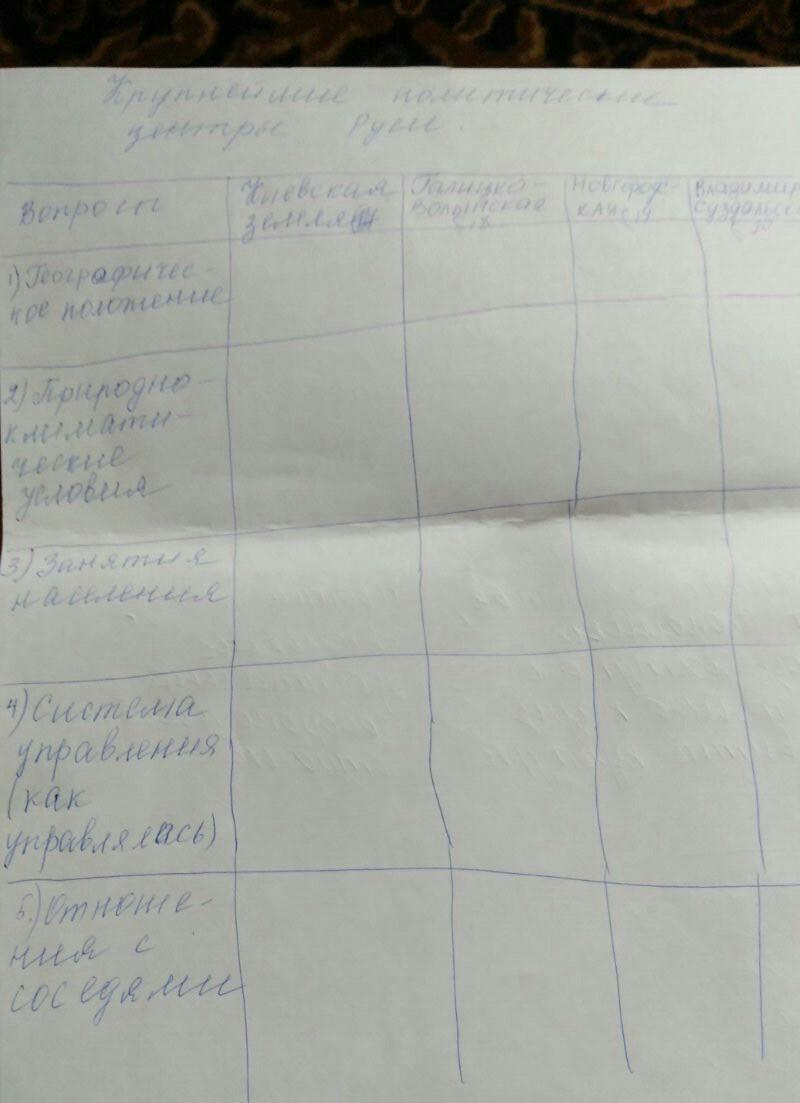 Крупнейшие политические
центры Руси.
Вопросы
Киевская
земля
Галицко-
Волынская
Новгород-
кая
Владимир
Суздальс
1) Географичес-
кое положение
2) Природно-
климати-
ческие
условия
3) Занятия
населения
4) Система
управления
(как
управлялась)
5.) Отноше-
ния с
соседями